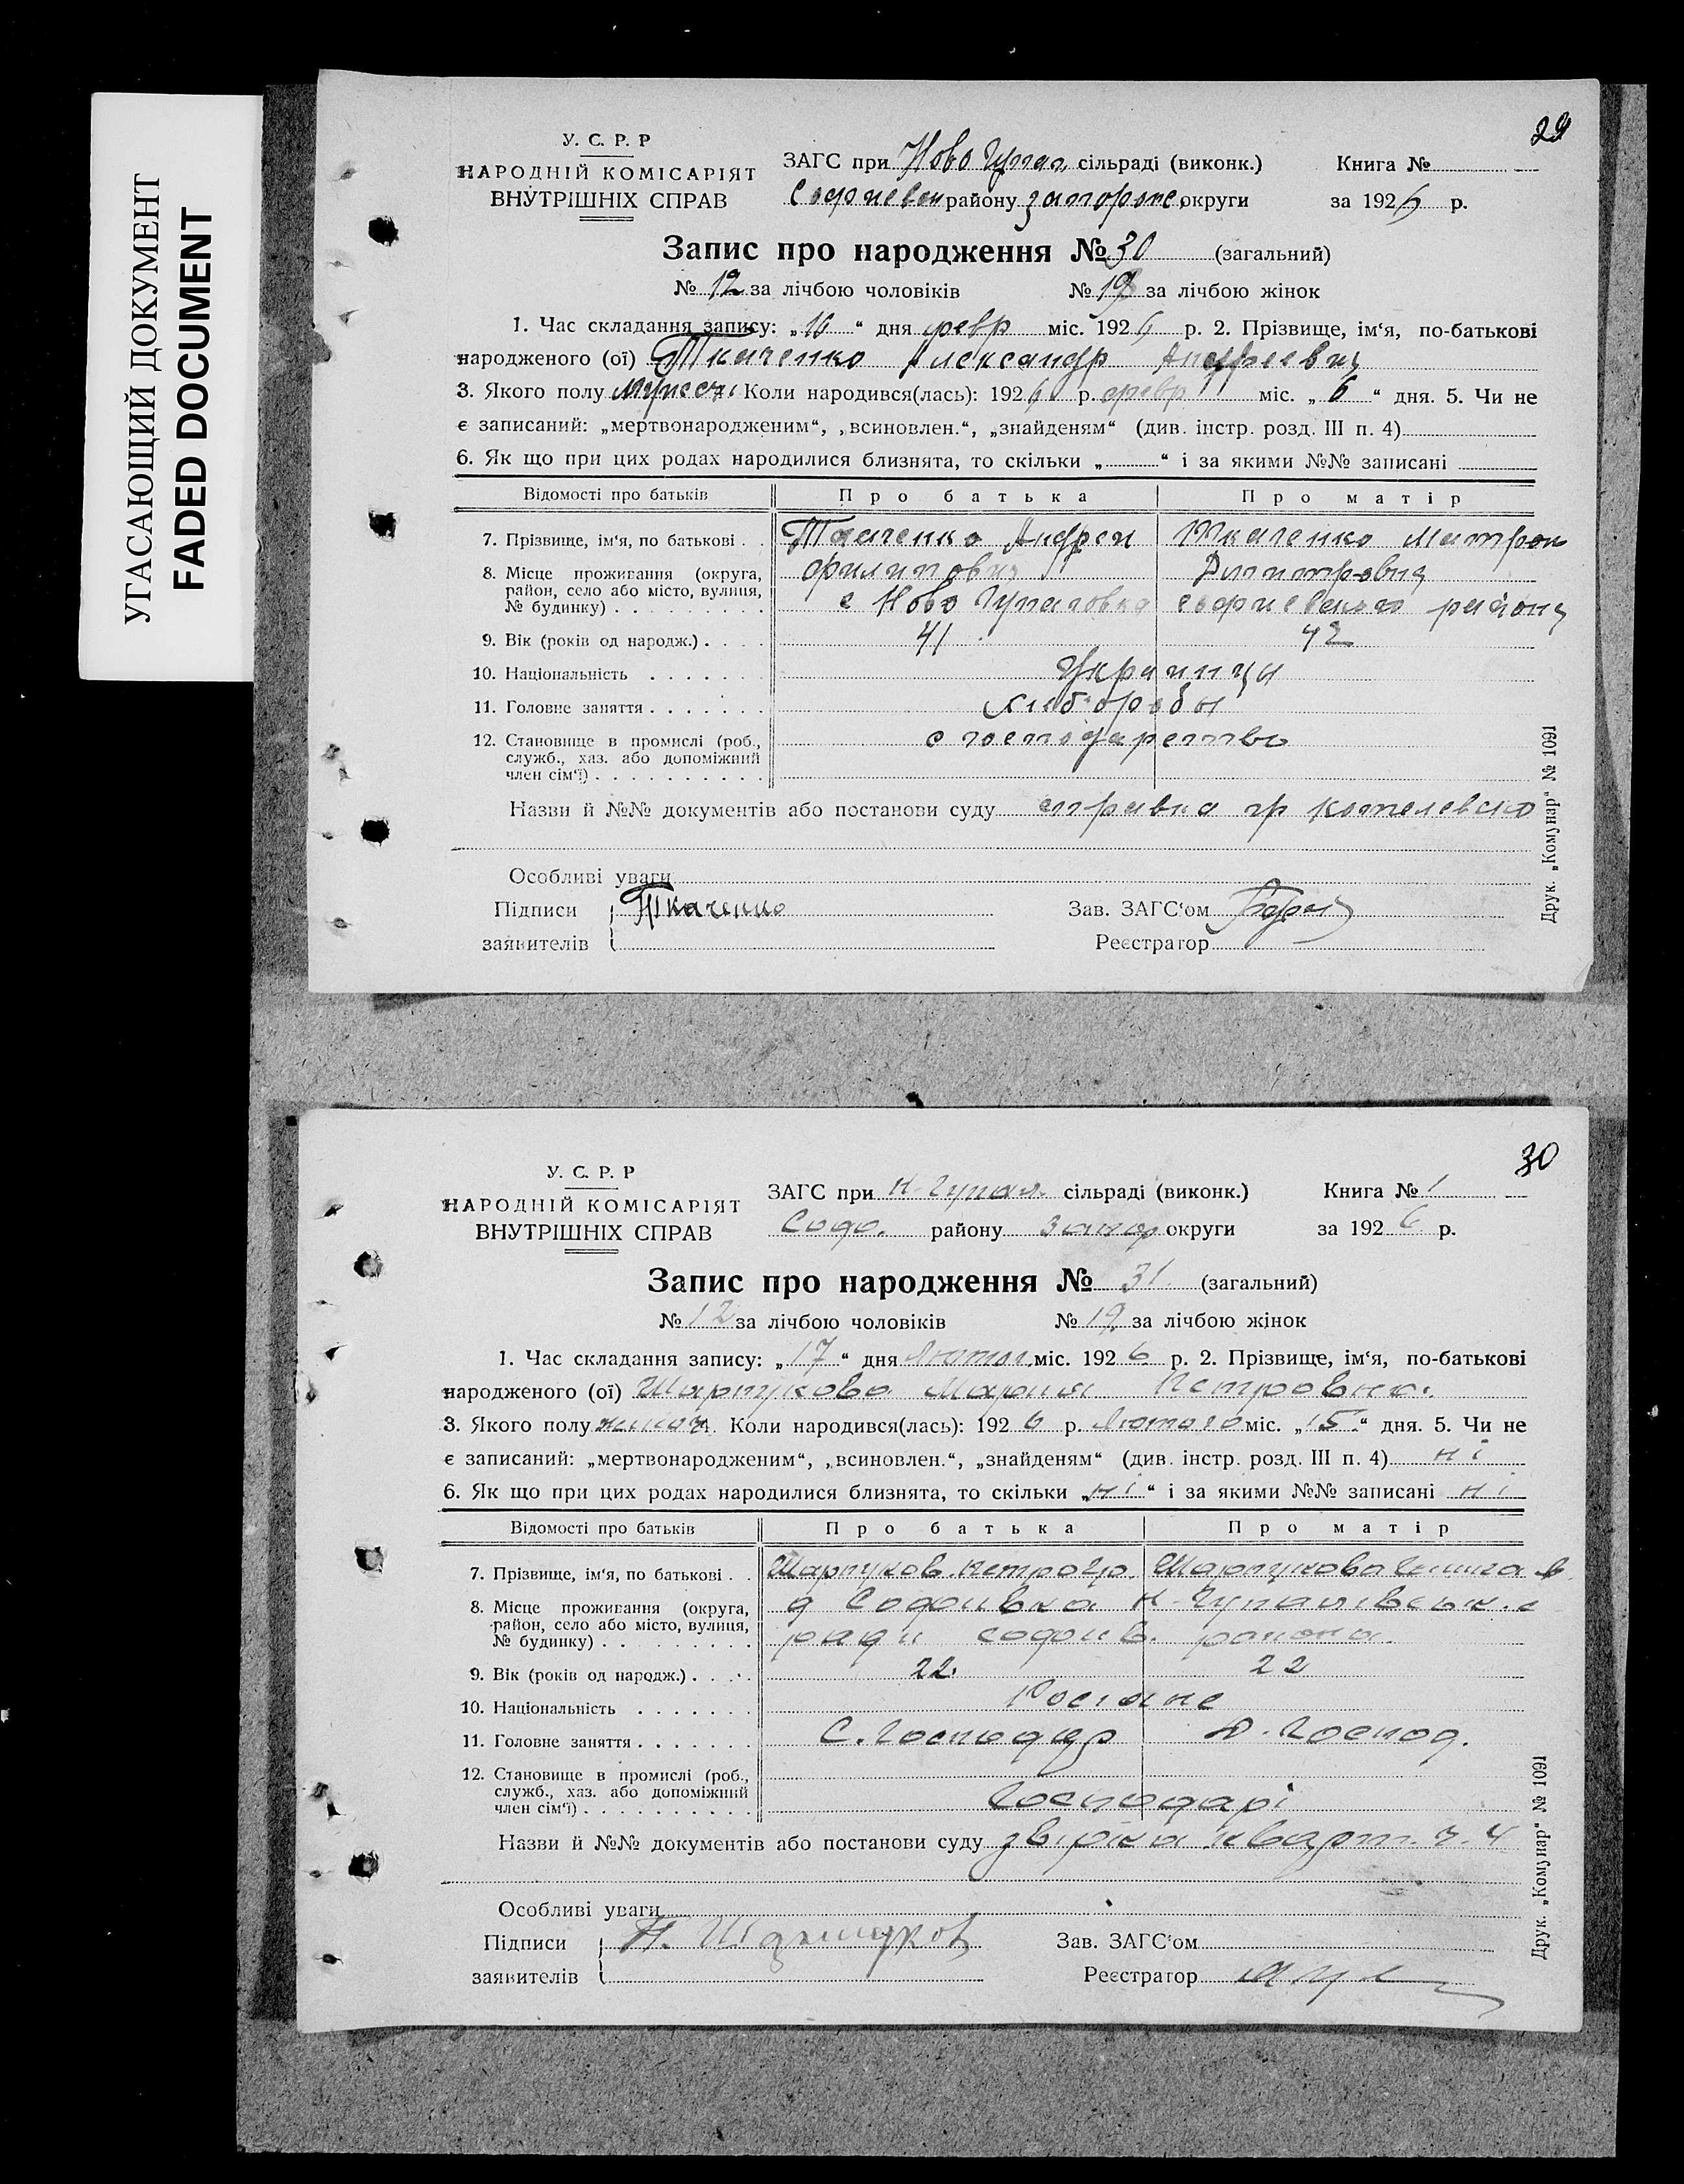 УГАСАЮЩИЙ ДОКУМЕНТ
FADED DOCUMENT
29
У. С. Р. Р
НАРОДНІЙ КОМІСАРІЯТ
ВНУТРІШНІХ СПРАВ
ЗАГС при Ново Гупал. сільраді (виконк.) Книга №
Софиевск району запорож. округи за 1926 р.
Запис про народження № 30 (загальний)
№ 12 за лічбою чоловіків № 18 за лічбою жінок
1. Час складання запису: „16“ дня февр міс. 1926 р. 2. Прізвище, ім‘я, по-батькові
народженого (ої) Ткаченко Александр Андреевич
3. Якого полу мужск. Коли народився(лась): 1926 р. февр міс. „6“ дня. 5. Чи не
є записаний: „мертвонародженим“, „всиновлен.“, „знайденям“ (див. інстр. розд. III п. 4)
6. Як що при цих родах народилися близнята, то скільки „ “ і за якими №№ записані
Відомості про батьків Про батька Про матір
7. Прізвище, ім‘я, по батькові . . Ткаченко Андрей Ткаченко Матрон
8. Місце проживання (округа, филипович Димитровна
район, село або місто, вулиця,
№ будинку) . . . . . . . . . с Ново Гупаловка софиевского району
9. Вік (років од народж.) . . . . 41 42
10. Національність . . . . . . . Украинцы
11. Головне заняття . . . . . . . хлиборобы
12. Становище в промислі (роб., с господарство
служб., хаз. або допоміжний
член сім‘ї) . . . . . . . . . .
Назви й №№ документів або постанови суду справка гр котелевско
Особливі уваги
Підписи Ткаченко Зав. ЗАГС‘ом
заявителів Реєстратор
Друк. „Комунар“ № 1091
30
У. С. Р. Р
НАРОДНІЙ КОМІСАРІЯТ
ВНУТРІШНІХ СПРАВ
ЗАГС при Н-Гупал. сільраді (виконк.) Книга № 1
Софо. району Запор округи за 1926 р.
Запис про народження № 31 (загальний)
№ 12 за лічбою чоловіків № 19 за лічбою жінок
1. Час складання запису: „17“ дня Лютого міс. 1926 р. 2. Прізвище, ім‘я, по-батькові
народженого (ої) Шартукова Мария Петровна.
3. Якого полу жиноч. 4. Коли народився(лась): 1926 р. Лютого міс. „15“ дня. 5. Чи не
є записаний: „мертвонародженим“, „всиновлен.“, „знайденям“ (див. інстр. розд. III п. 4) ні
6. Як що при цих родах народилися близнята, то скільки „ні“ і за якими №№ записані ні
Відомості про батьків Про батька Про матір
7. Прізвище, ім‘я, по батькові . . Шартуков. Петро Гр. Шартукова
8. Місце проживання (округа, д Софиівка Н-Гупалівськ. с
район, село або місто, вулиця,
№ будинку) . . . . . . . . . ради софиів. района.
9. Вік (років од народж.) . . . . 22. 22
10. Національність . . . . . . . Росіяне
11. Головне заняття . . . . . . . С. Господар Д. Господ.
12. Становище в промислі (роб.,
служб., хаз. або допоміжний
член сім‘ї) . . . . . . . . . . Господарі
Назви й №№ документів або постанови суду звірка кварт. ч. 4
Особливі уваги
Підписи П. Шартуков Зав. ЗАГС‘ом
заявителів Реєстратор
Друк. „Комунар“ № 1091